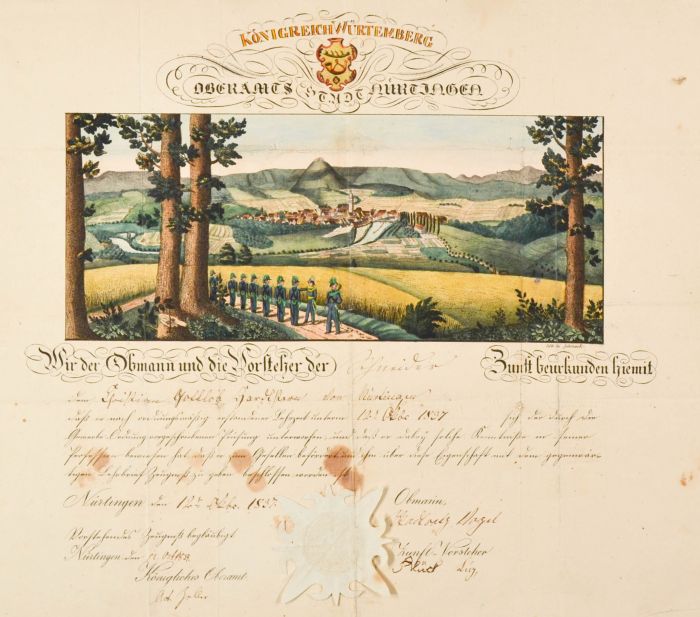 KÖNIGREICH WÜRTEMBERG
OBERAMTS STADT NÜRTINGEN
Wir der Obmann und die Vorsteher der Schneider Zunft beurkunden hiemit
dem Christian Gottlob von Nürtingen
daß er nach ordnungsmäßig erstandener Lehrzeit unterm 12 Okbr. 1837 sich der durch die
Gewerbe-Ordnung vorgeschriebenen Prüfung unterworfen, und daß er dabey solche Kenntnisse in seiner
Profession bewiesen hat daß er zum Gesellen befördert, um ihm über diese Eigenschaft mit dem gegenwär-
tigen Lehrbrief Zeugniß zu geben beschlossen worden ist
Nürtingen den 12 Okbr. 1837.
Obmann,
Vorstehendes Zeugniß beglaubigt
Nürtingen den
Zunft-Vorsteher
Königliches Oberamt